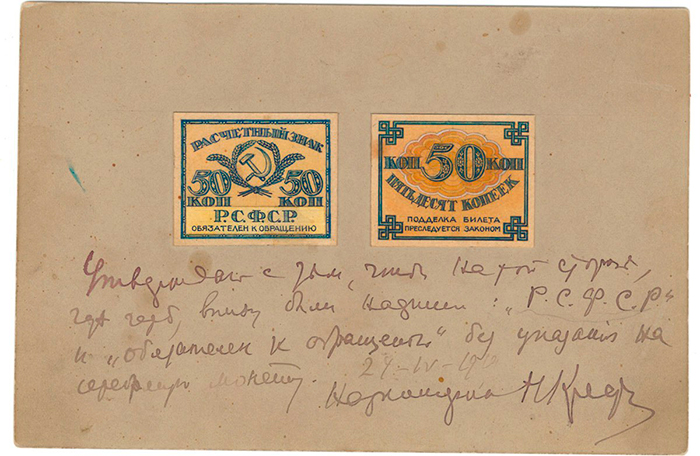 РАСЧЕТНЫЙ ЗНАК
50 50
КОП КОП
Р.С.Ф.С.Р.
ОБЯЗАТЕЛЕН К ОБРАЩЕНИЮ
КОП 50 КОП
ПЯТЬДЕСЯТ КОПЕЕК
ПОДДЕЛКА БИЛЕТА
ПРЕСЛЕДУЕТСЯ ЗАКОНОМ
Утверждаю с тем, чтобы на той стороне,
где герб, внизу были надписи: „Р.С.Ф.С.Р“
и „обязателен к обращению“ без указания на
серебряную монету.
Наркомфин Н